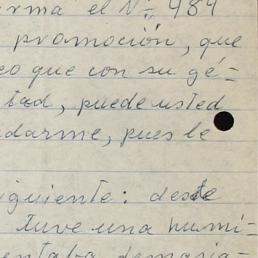 rma el Nº 484
promoción, que
eo que con su gé=
tad, puede usted
darme, pues le
iguiente: deste
tuve una humi=
entaba demasia-